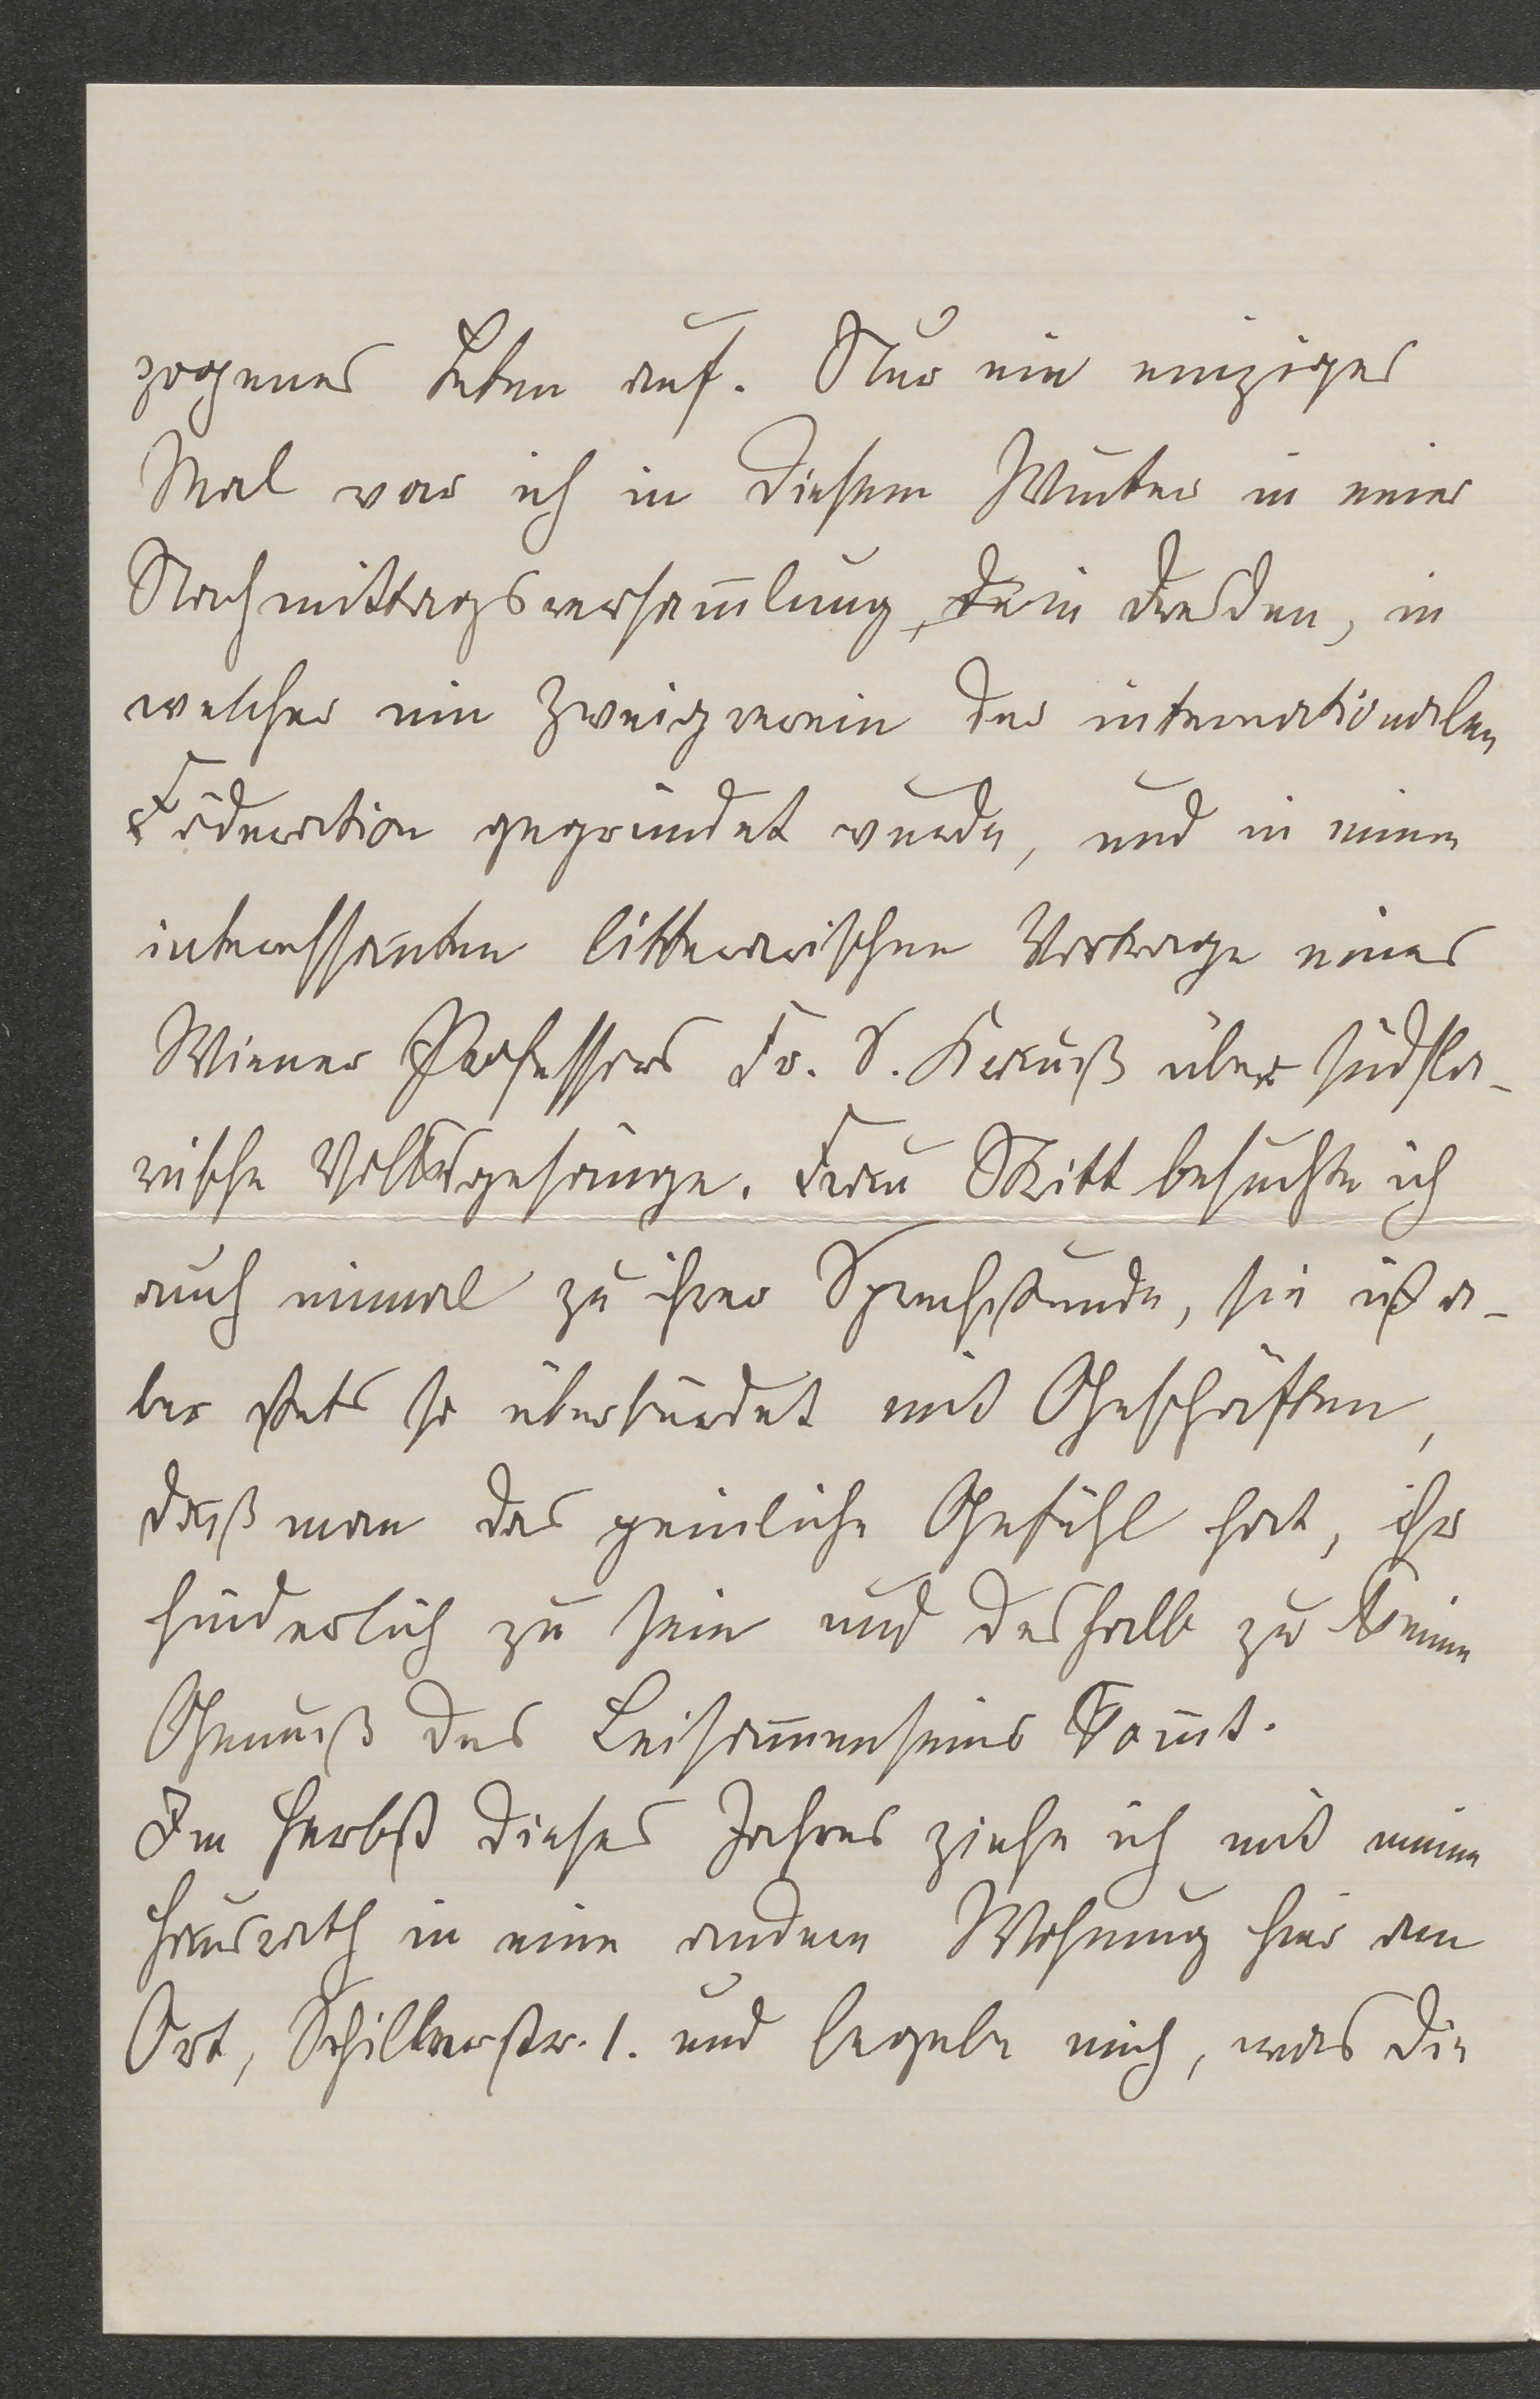 zogenes Leben auf. Nur ein einziges
Mal war ich in diesem Winter in einer
Nachmittagsversam̅lung, in Dresden, in
welcher ein Zweigverein der internationalen
Föderation gegründet wurde, und in einem
interessanten litterarischen Vortrage eines
Wiener Professors Fr. S. Krauß über südsla-
vische Volksgesänge. Frau Stritt besuchte ich
auch einmal zu ihrer Sprechstunde, sie ist a-
ber stets so überbürdet mit Geschäften,
daß man das peinliche Gefühl hat, ihr
hinderlich zu sein und deshalb zu keinem
Genuß des Beisam̅enseins kom̅t.
Im Herbst dieses Jahres ziehe ich mit meinem
Hausrath in eine andere Wohnung hier am
Ort, Schillerstr. 1. und begebe mich, was die